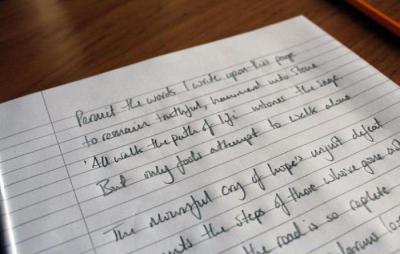 Permit the words I write upon this page
to remain truthful, hammered into stone
'All walk the path of life' intones the sage
But only fools attempt to walk alone
The mournful cry of hope's unjust defeat
the steps of those who've gone
the road is so replete